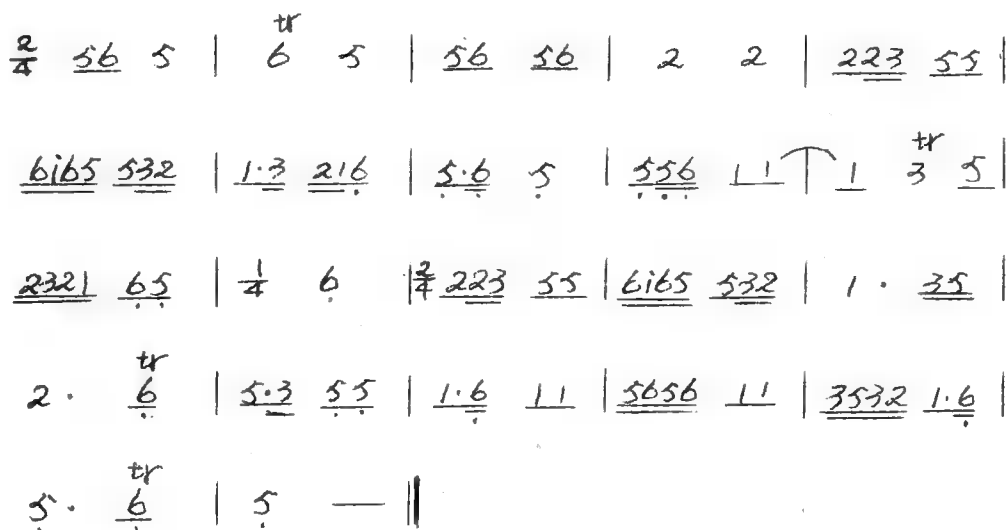 2/4 56 5 | 6 tr 5 | 56 56 | 2 2 | 223 55 |
6i65 532 | 1·3 216̣ | 5̣·6̣ 5̣ | 5̣5̣6̣ 11 | 1 3 tr 5 |
2321 6̣5̣ | 1/4 6̣ | 2/4 223 55 | 6i65 532 | 1· 35 |
2· 6̣ tr | 5·3 5̣5̣ | 1·6̣ 11 | 5656 11 | 3532 1·6̣ |
5̣· 6̣ tr | 5̣ — ||